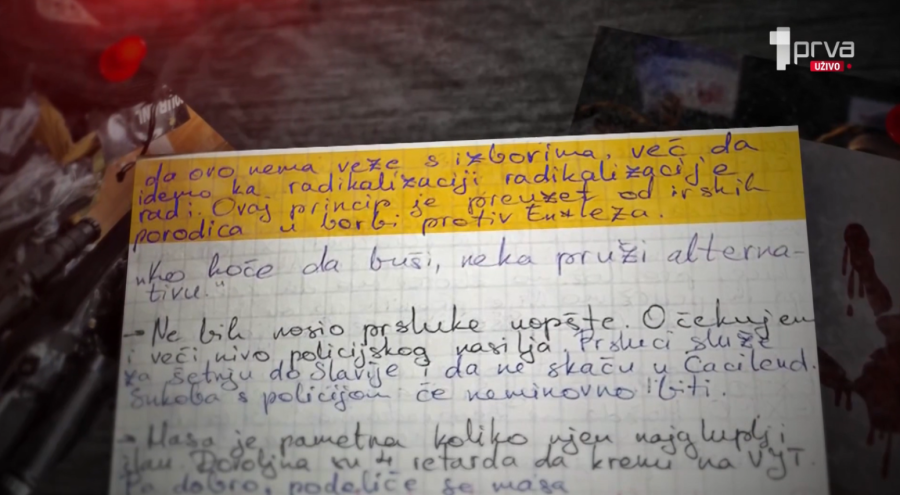 1prva
UŽIVO
da ovo nema veze s izborima, več da
idemo ka radikalizaciji radikalizacije
radi. Ovaj princip je preuzet od irskih
porodica u borbi protiv Engleza.
"Ko hoće da buši, neka pruži alterna-
tivu."
→ Ne bih nosio prsluke uopšte. Očekujem
i veči nivo policijskog nasilja. Prsluci služe
za šetnju do Slavije i da ne skaču u Ćacilend.
Sukoba s policijom če neminovno biti.
→ Masa je pametna koliko njen najgluplji
član. Dovoljna su 4 retarda da krenu na VJT.
Pa dobro, podeliče se masa